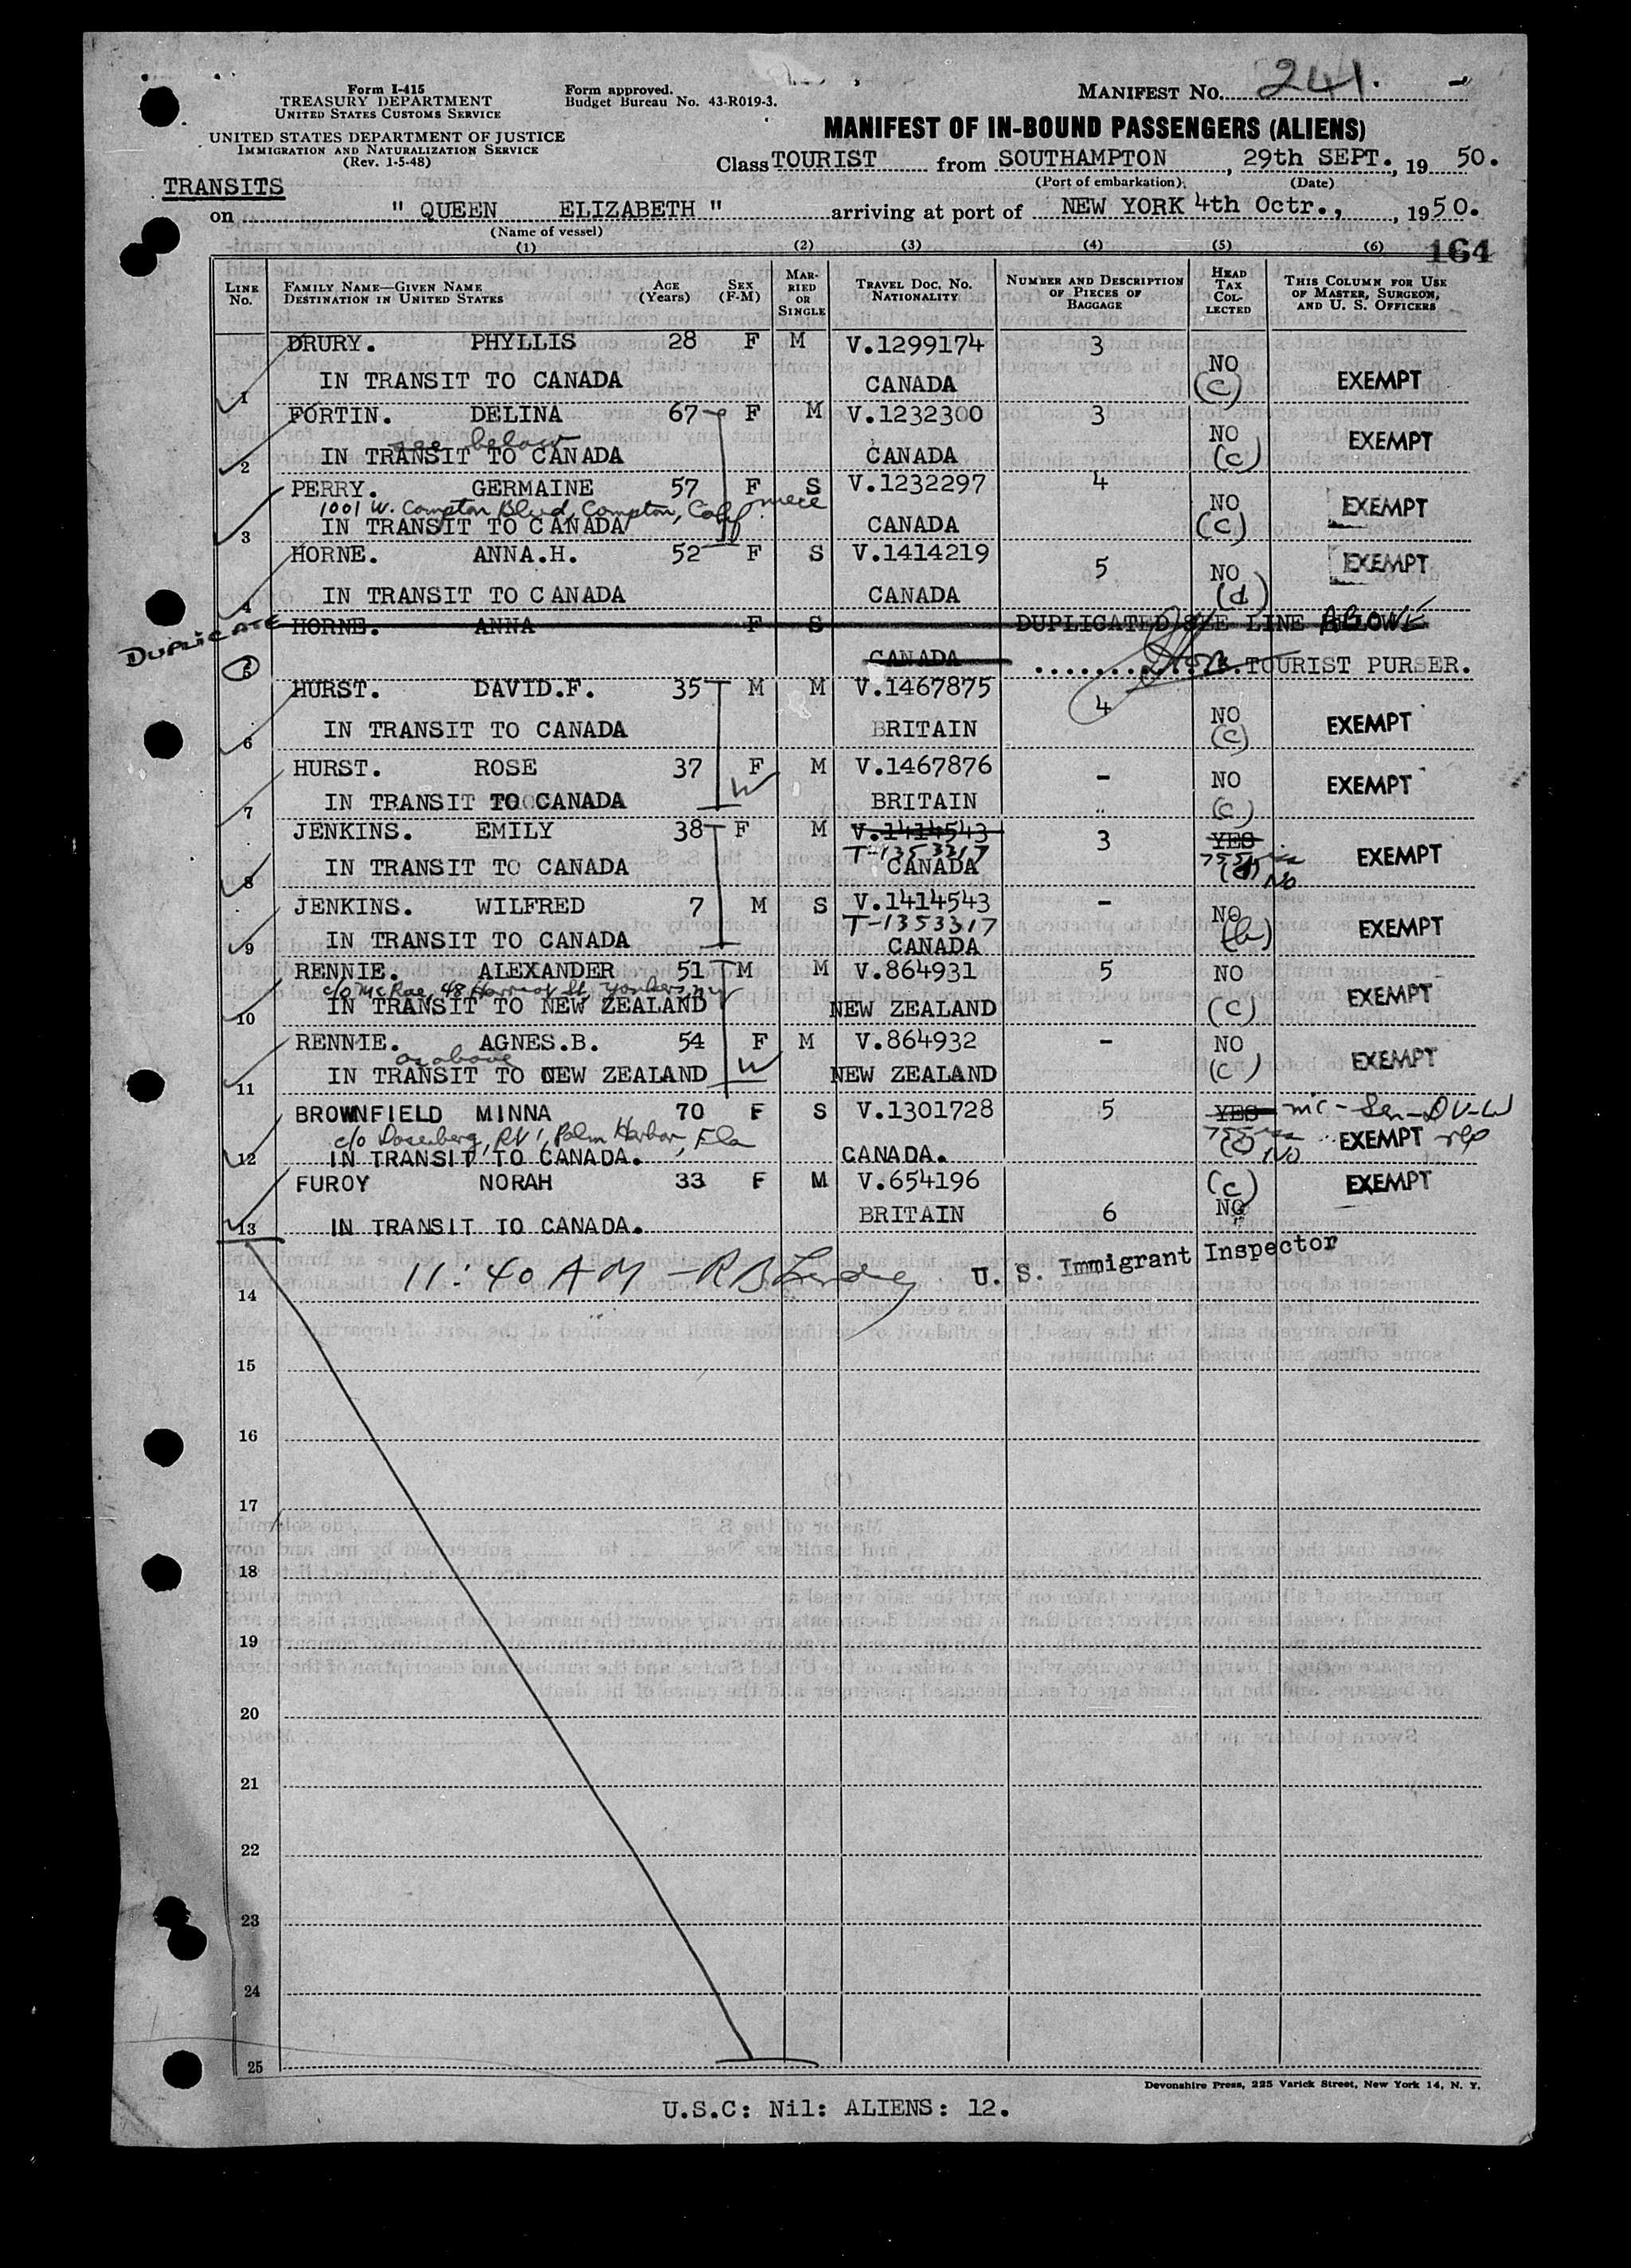 Form I-415
TREASURY DEPARTMENT
UNITED STATES CUSTOMS SERVICE
UNITED STATES DEPARTMENT OF JUSTICE
IMMIGRATION AND NATURALIZATION SERVICE
(Rev. 1-5-48)
Form approved.
Budget Bureau No. 43-R019-3.
MANIFEST No. 241.
MANIFEST OF IN-BOUND PASSENGERS (ALIENS)
Class TOURIST from SOUTHAMPTON, 29th SEPT., 19 50.
(Port of embarkation) (Date)
TRANSITS
on " QUEEN ELIZABETH " arriving at port of NEW YORK 4th Octr., , 1950.
(Name of vessel)
(1) (2) (3) (4) (5) (6) 164
LINE No. FAMILY NAME—GIVEN NAME DESTINATION IN UNITED STATES AGE (Years) SEX (F-M) MARRIED OR SINGLE TRAVEL DOC. NO. NATIONALITY NUMBER AND DESCRIPTION OF PIECES OF BAGGAGE HEAD TAX COLLECTED THIS COLUMN FOR USE OF MASTER, SURGEON, AND U. S. OFFICERS
DRURY. PHYLLIS 28 F M V.1299174 3 NO
1 IN TRANSIT TO CANADA CANADA (c) EXEMPT
FORTIN. DELINA 67 F M V.1232300 3 NO
see below
2 IN TRANSIT TO CANADA CANADA (c) EXEMPT
PERRY. GERMAINE 57 F S V.1232297 4 NO
1001 W. Compton Blvd, Compton, Calif niece
3 IN TRANSIT TO CANADA CANADA (c) EXEMPT
HORNE. ANNA.H. 52 F S V.1414219 5 NO EXEMPT
4 IN TRANSIT TO CANADA CANADA (d)
DUPLICATE HORNE. ANNA F S DUPLICATED SEE LINE ABOVE
5 CANADA TOURIST PURSER.
HURST. DAVID.F. 35 M M V.1467875 4 NO
6 IN TRANSIT TO CANADA BRITAIN (c) EXEMPT
HURST. ROSE 37 F M V.1467876 - NO EXEMPT
W
7 IN TRANSIT TO CANADA BRITAIN (c)
JENKINS. EMILY 38 F M V.1414543 3 YES
T-1353317
8 IN TRANSIT TO CANADA CANADA (d) No EXEMPT
JENKINS. WILFRED 7 M S V.1414543 - NO
T-1353317
9 IN TRANSIT TO CANADA CANADA (b) EXEMPT
RENNIE. ALEXANDER 51 M M V.864931 5 NO
c/o McRae, 48 Harriot St, Yonkers, NY
10 IN TRANSIT TO NEW ZEALAND NEW ZEALAND (c) EXEMPT
RENNIE. AGNES.B. 54 F M V.864932 - NO
as above
W
11 IN TRANSIT TO NEW ZEALAND NEW ZEALAND (c) EXEMPT
BROWNFIELD MINNA 70 F S V.1301728 5 YES
c/o Dosenberg, RV 1, Palm Harbor, Fla
12 IN TRANSIT TO CANADA. CANADA. No EXEMPT
FUROY NORAH 33 F M V.654196 (c) EXEMPT
13 IN TRANSIT TO CANADA. BRITAIN 6 NO
11:40 AM U. S. Immigrant Inspector
14
15
16
17
18
19
20
21
22
23
24
25
Devonshire Press, 225 Varick Street, New York 14, N. Y.
U.S.C: Nil: ALIENS: 12.